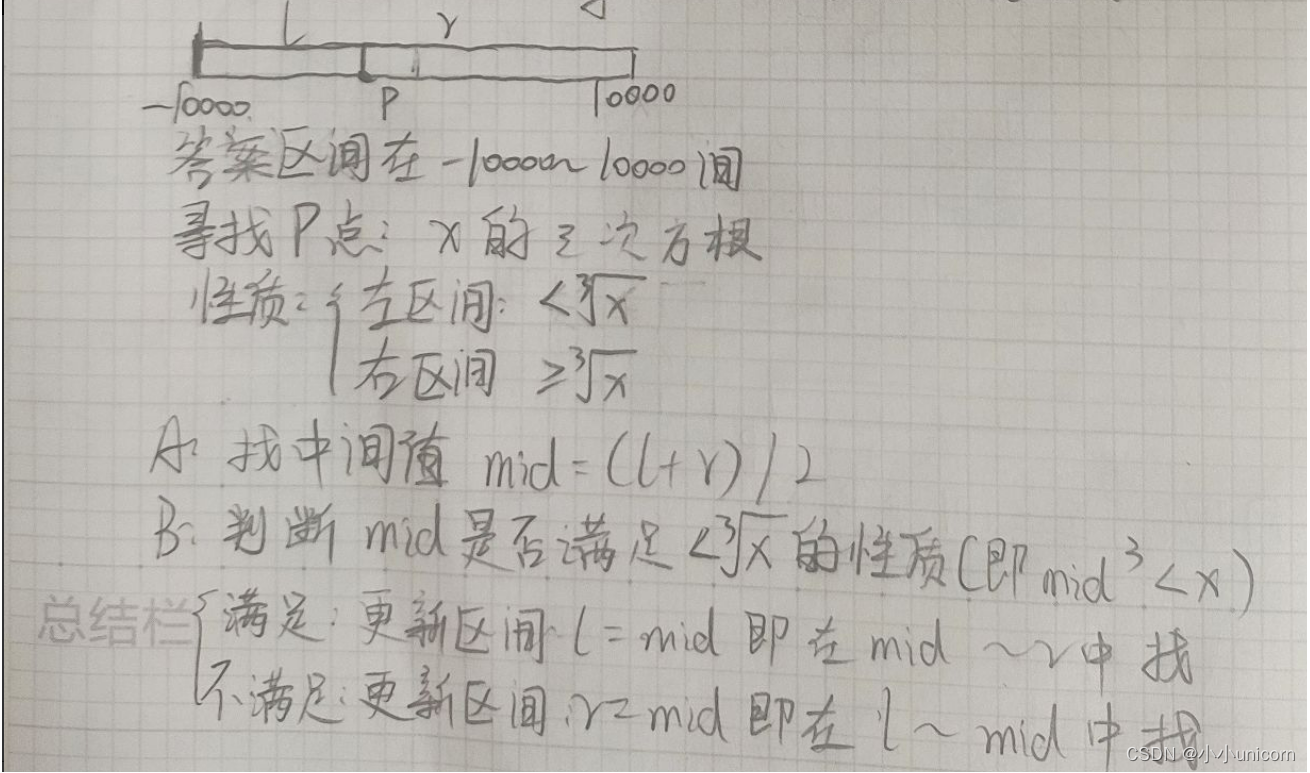 l r
-10000 P 10000
答案区间在-10000~10000间
寻找P点:x的三次方根
性质:{左区间:<∛x
右区间 ≥∛x
A:找中间值 mid=(l+r)/2
B:判断mid是否满足<∛x的性质(即mid³<x)
总结栏
{满足:更新区间l=mid即在mid~r中找
不满足:更新区间:r=mid即在l~mid中找
CSDN @小小unicorn